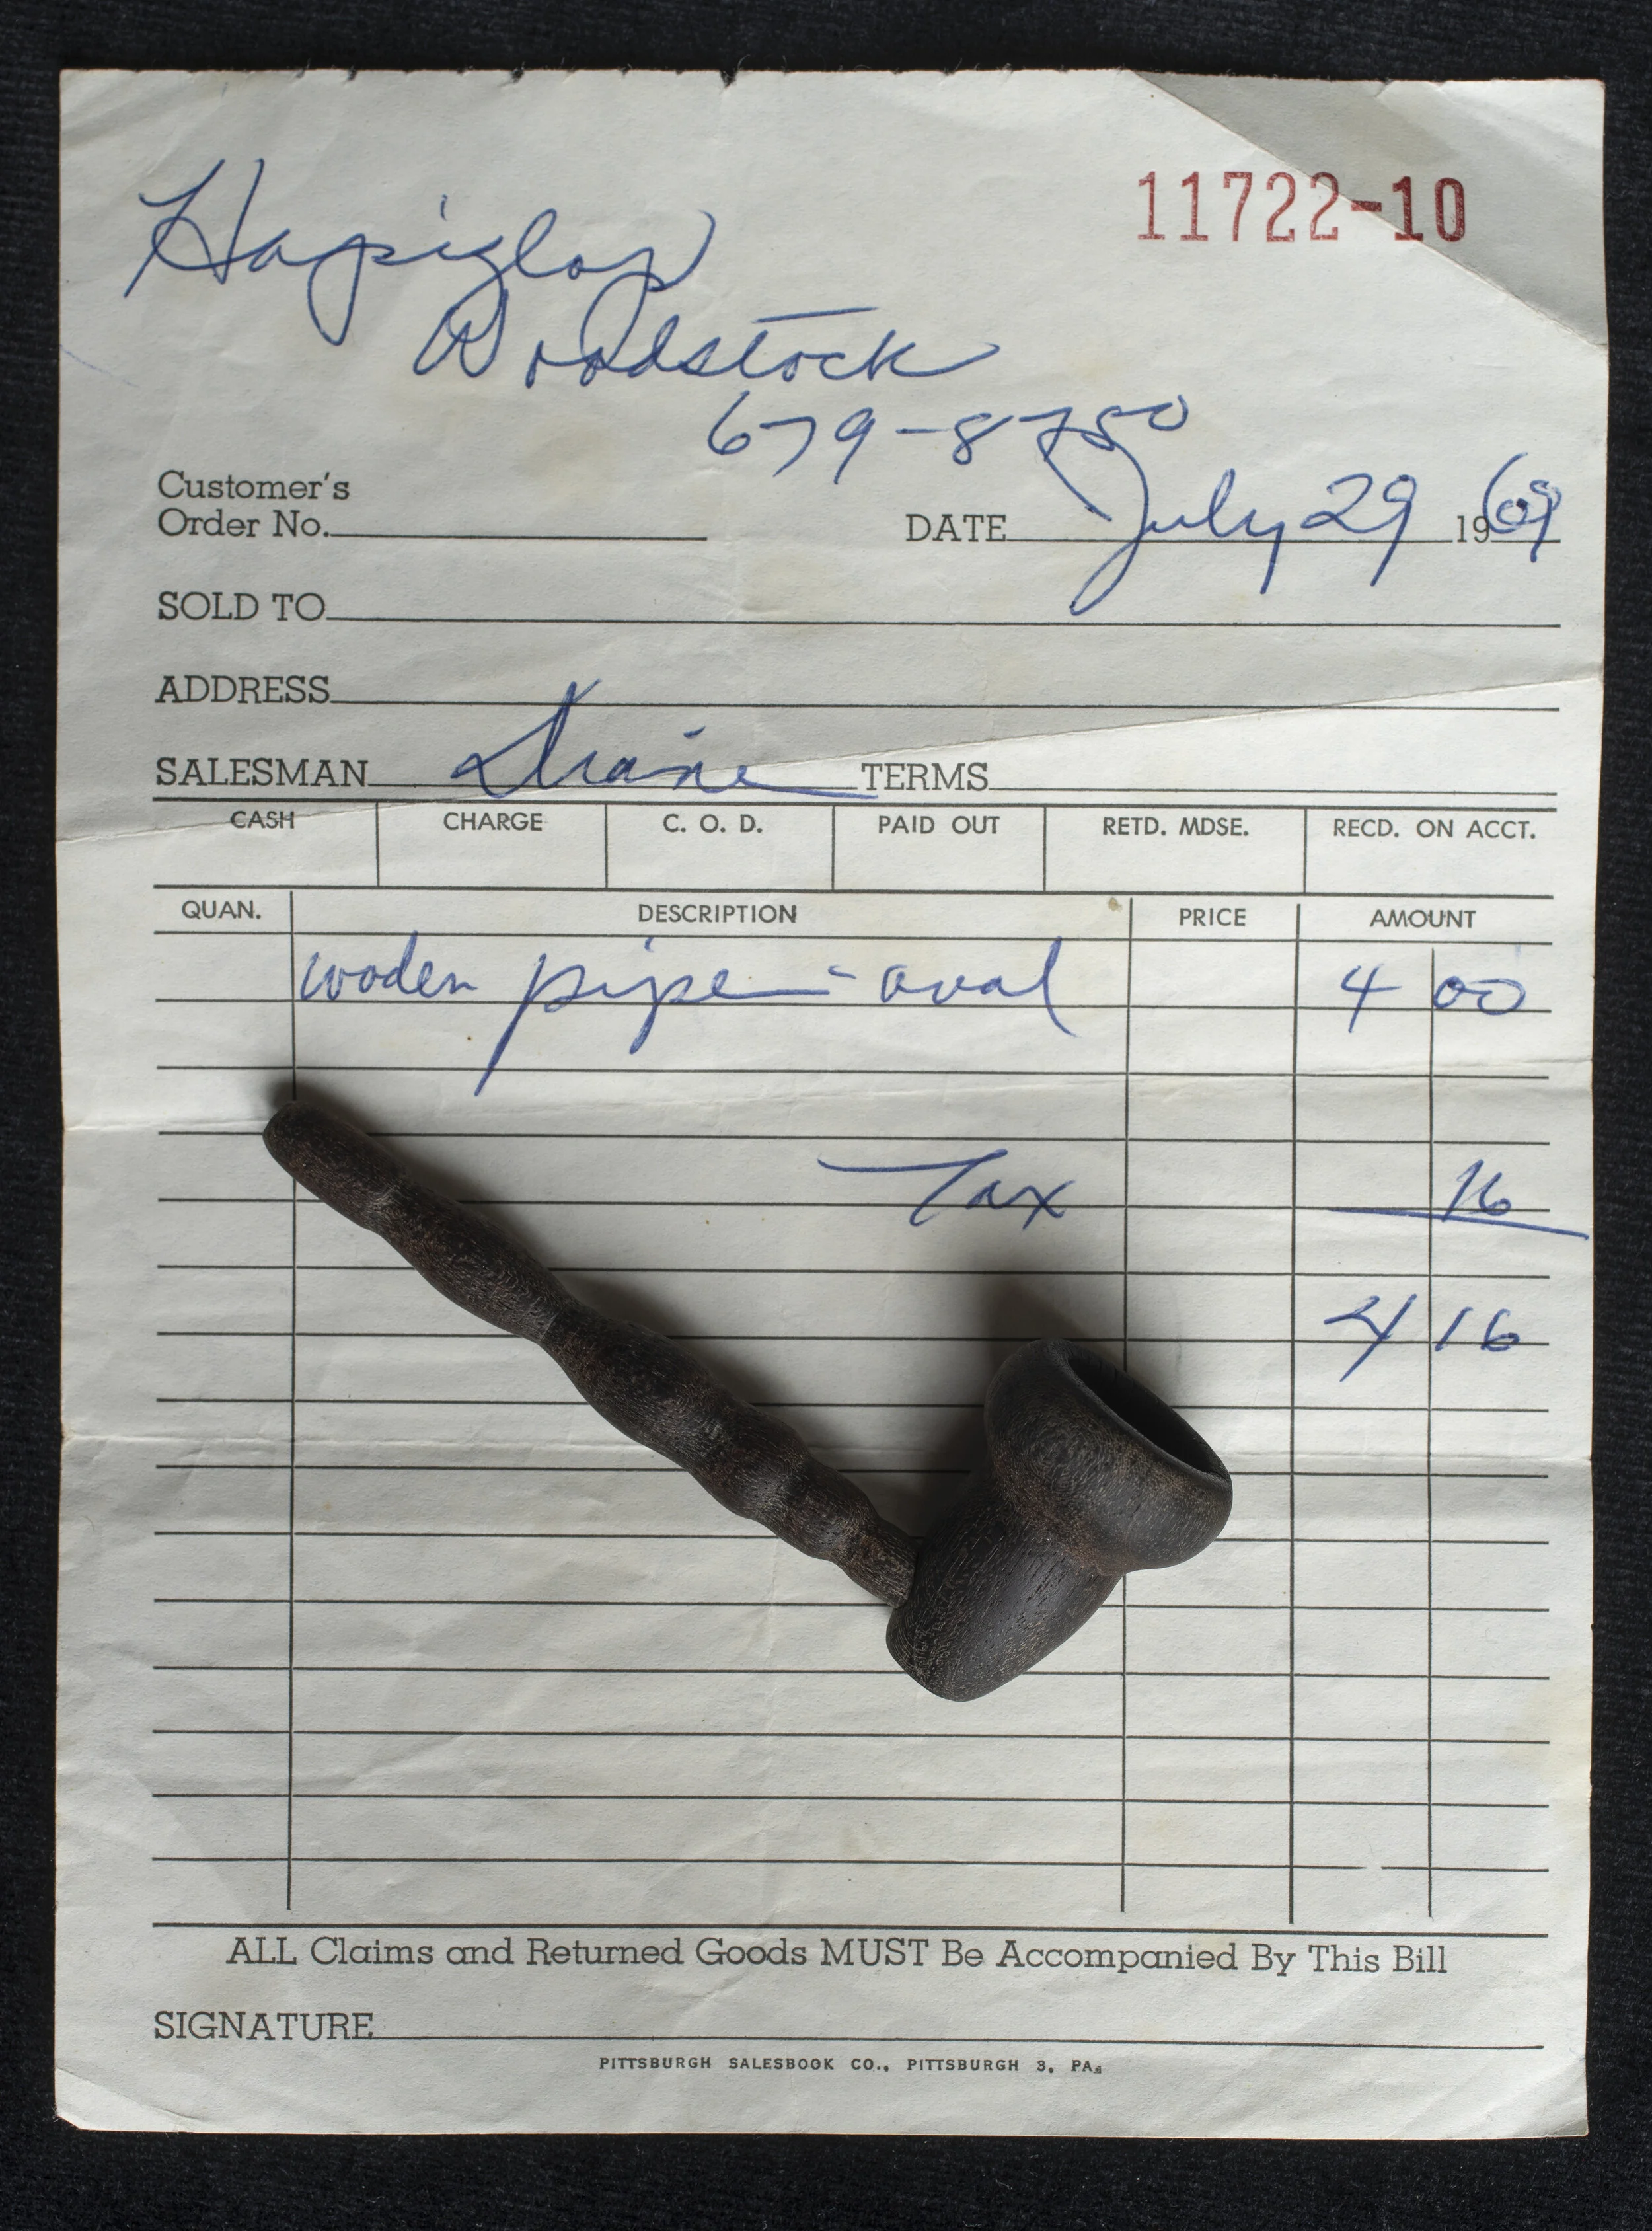 11722-10
Hapiglop
Woodstock
679-8750
Customer's
Order No.
DATE July 29 1969
SOLD TO
ADDRESS
SALESMAN Diane TERMS
CASH CHARGE C. O. D. PAID OUT RETD. MDSE. RECD. ON ACCT.
QUAN. DESCRIPTION PRICE AMOUNT
wooden pipe - oval 4 00
Tax 16
4 16
ALL Claims and Returned Goods MUST Be Accompanied By This Bill
SIGNATURE
PITTSBURGH SALESBOOK CO., PITTSBURGH 3, PA.